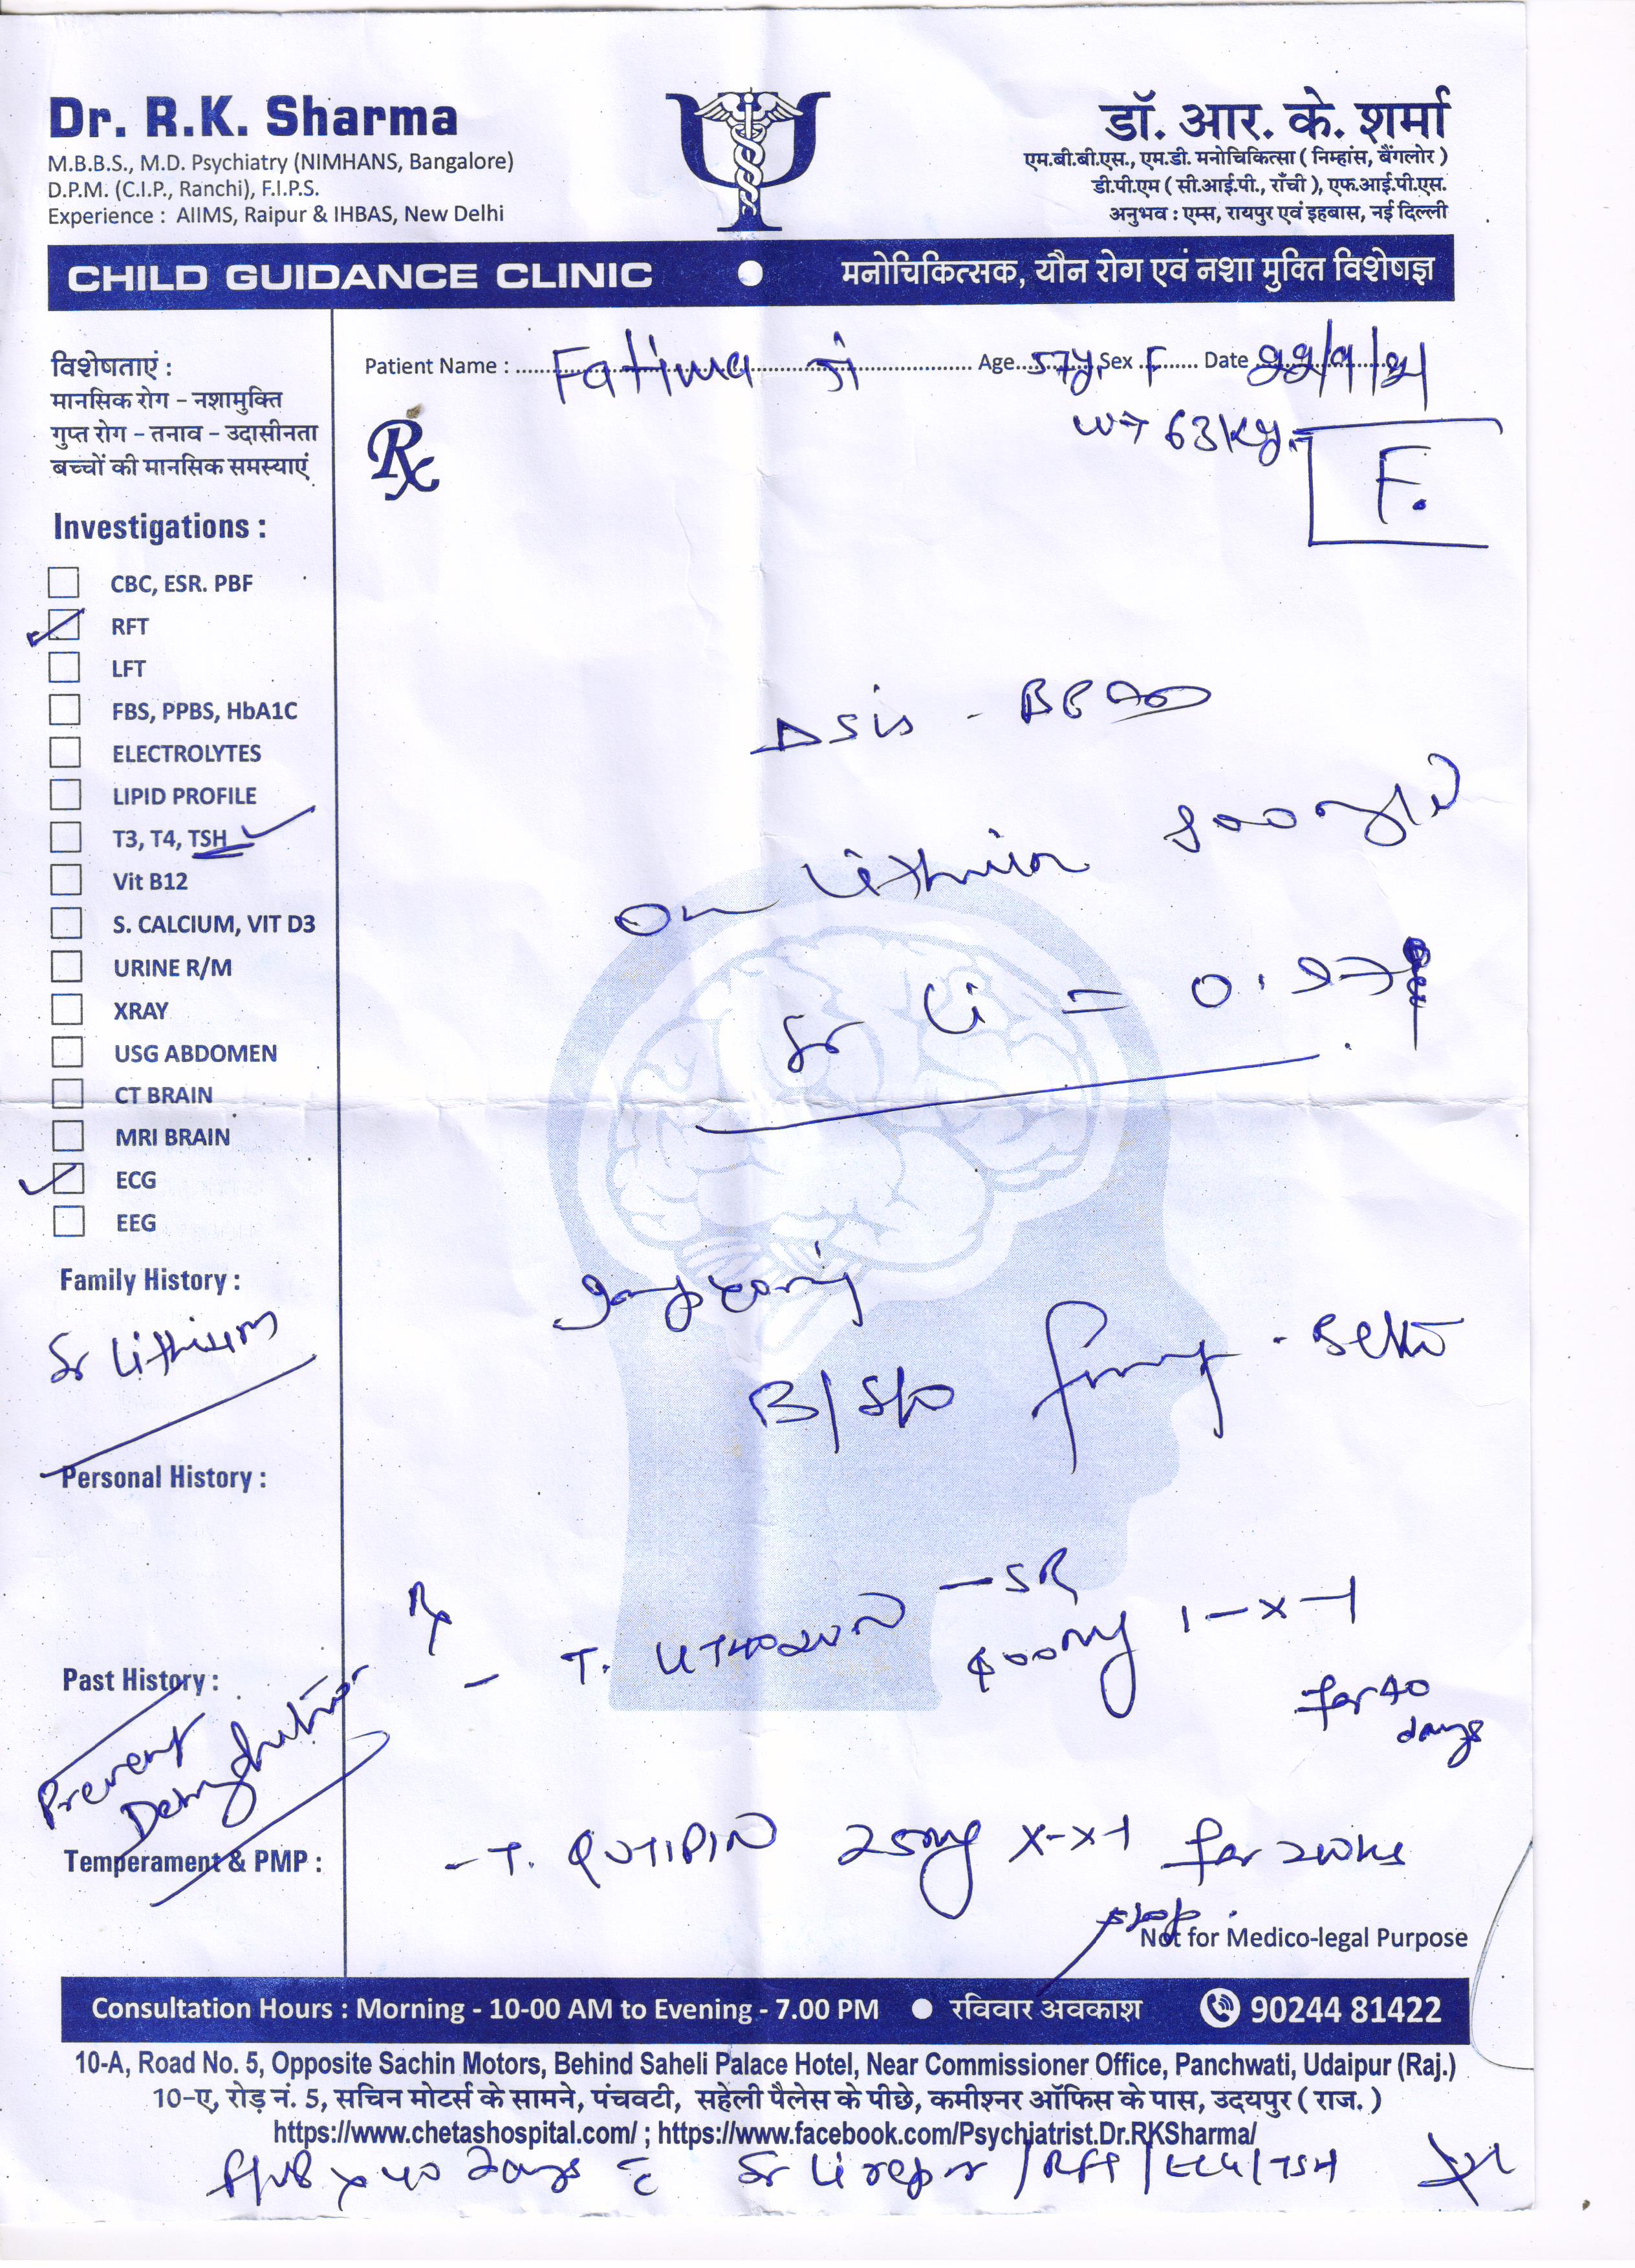 Dr. R.K. Sharma
M.B.B.S., M.D. Psychiatry (NIMHANS, Bangalore)
D.P.M. (C.I.P., Ranchi), F.I.P.S.
Experience : AIIMS, Raipur & IHBAS, New Delhi
डॉ. आर. के. शर्मा
एम.बी.बी.एस., एम.डी. मनोचिकित्सा ( निम्हांस, बैंगलोर )
डी.पी.एम ( सी.आई.पी., राँची ), एफ.आई.पी.एस.
अनुभव : एम्स, रायपुर एवं इहबास, नई दिल्ली
CHILD GUIDANCE CLINIC
मनोचिकित्सक, यौन रोग एवं नशा मुक्ति विशेषज्ञ
Patient Name : Fatima जी Age 57y. Sex F Date
wt 63kg.
F.
Rx
विशेषताएं :
मानसिक रोग – नशामुक्ति
गुप्त रोग – तनाव – उदासीनता
बच्चों की मानसिक समस्याएं
Investigations :
CBC, ESR. PBF
RFT
LFT
FBS, PPBS, HbA1C
ELECTROLYTES
LIPID PROFILE
T3, T4, TSH
Vit B12
S. CALCIUM, VIT D3
URINE R/M
XRAY
USG ABDOMEN
CT BRAIN
MRI BRAIN
ECG
EEG
Family History :
Sr Lithium
Personal History :
Past History :
Prevent
Dehydration
Temperament & PMP :
Δsis - BPAD
on Lithium
Sr Li =
Rx
- T. LITHOSUN - SR 400mg 1-x-1
for 40
days
- T. QUTIPIN 25mg x-x-1 for 2wks
stop
Not for Medico-legal Purpose
Consultation Hours : Morning - 10-00 AM to Evening - 7.00 PM ● रविवार अवकाश 90244 81422
10-A, Road No. 5, Opposite Sachin Motors, Behind Saheli Palace Hotel, Near Commissioner Office, Panchwati, Udaipur (Raj.)
10-ए, रोड़ नं. 5, सचिन मोटर्स के सामने, पंचवटी, सहेली पैलेस के पीछे, कमीश्नर ऑफिस के पास, उदयपुर ( राज. )
https://www.chetashospital.com/ ; https://www.facebook.com/Psychiatrist.Dr.RKSharma/
40 days c Sr Li report / RFT / ECG / TSH